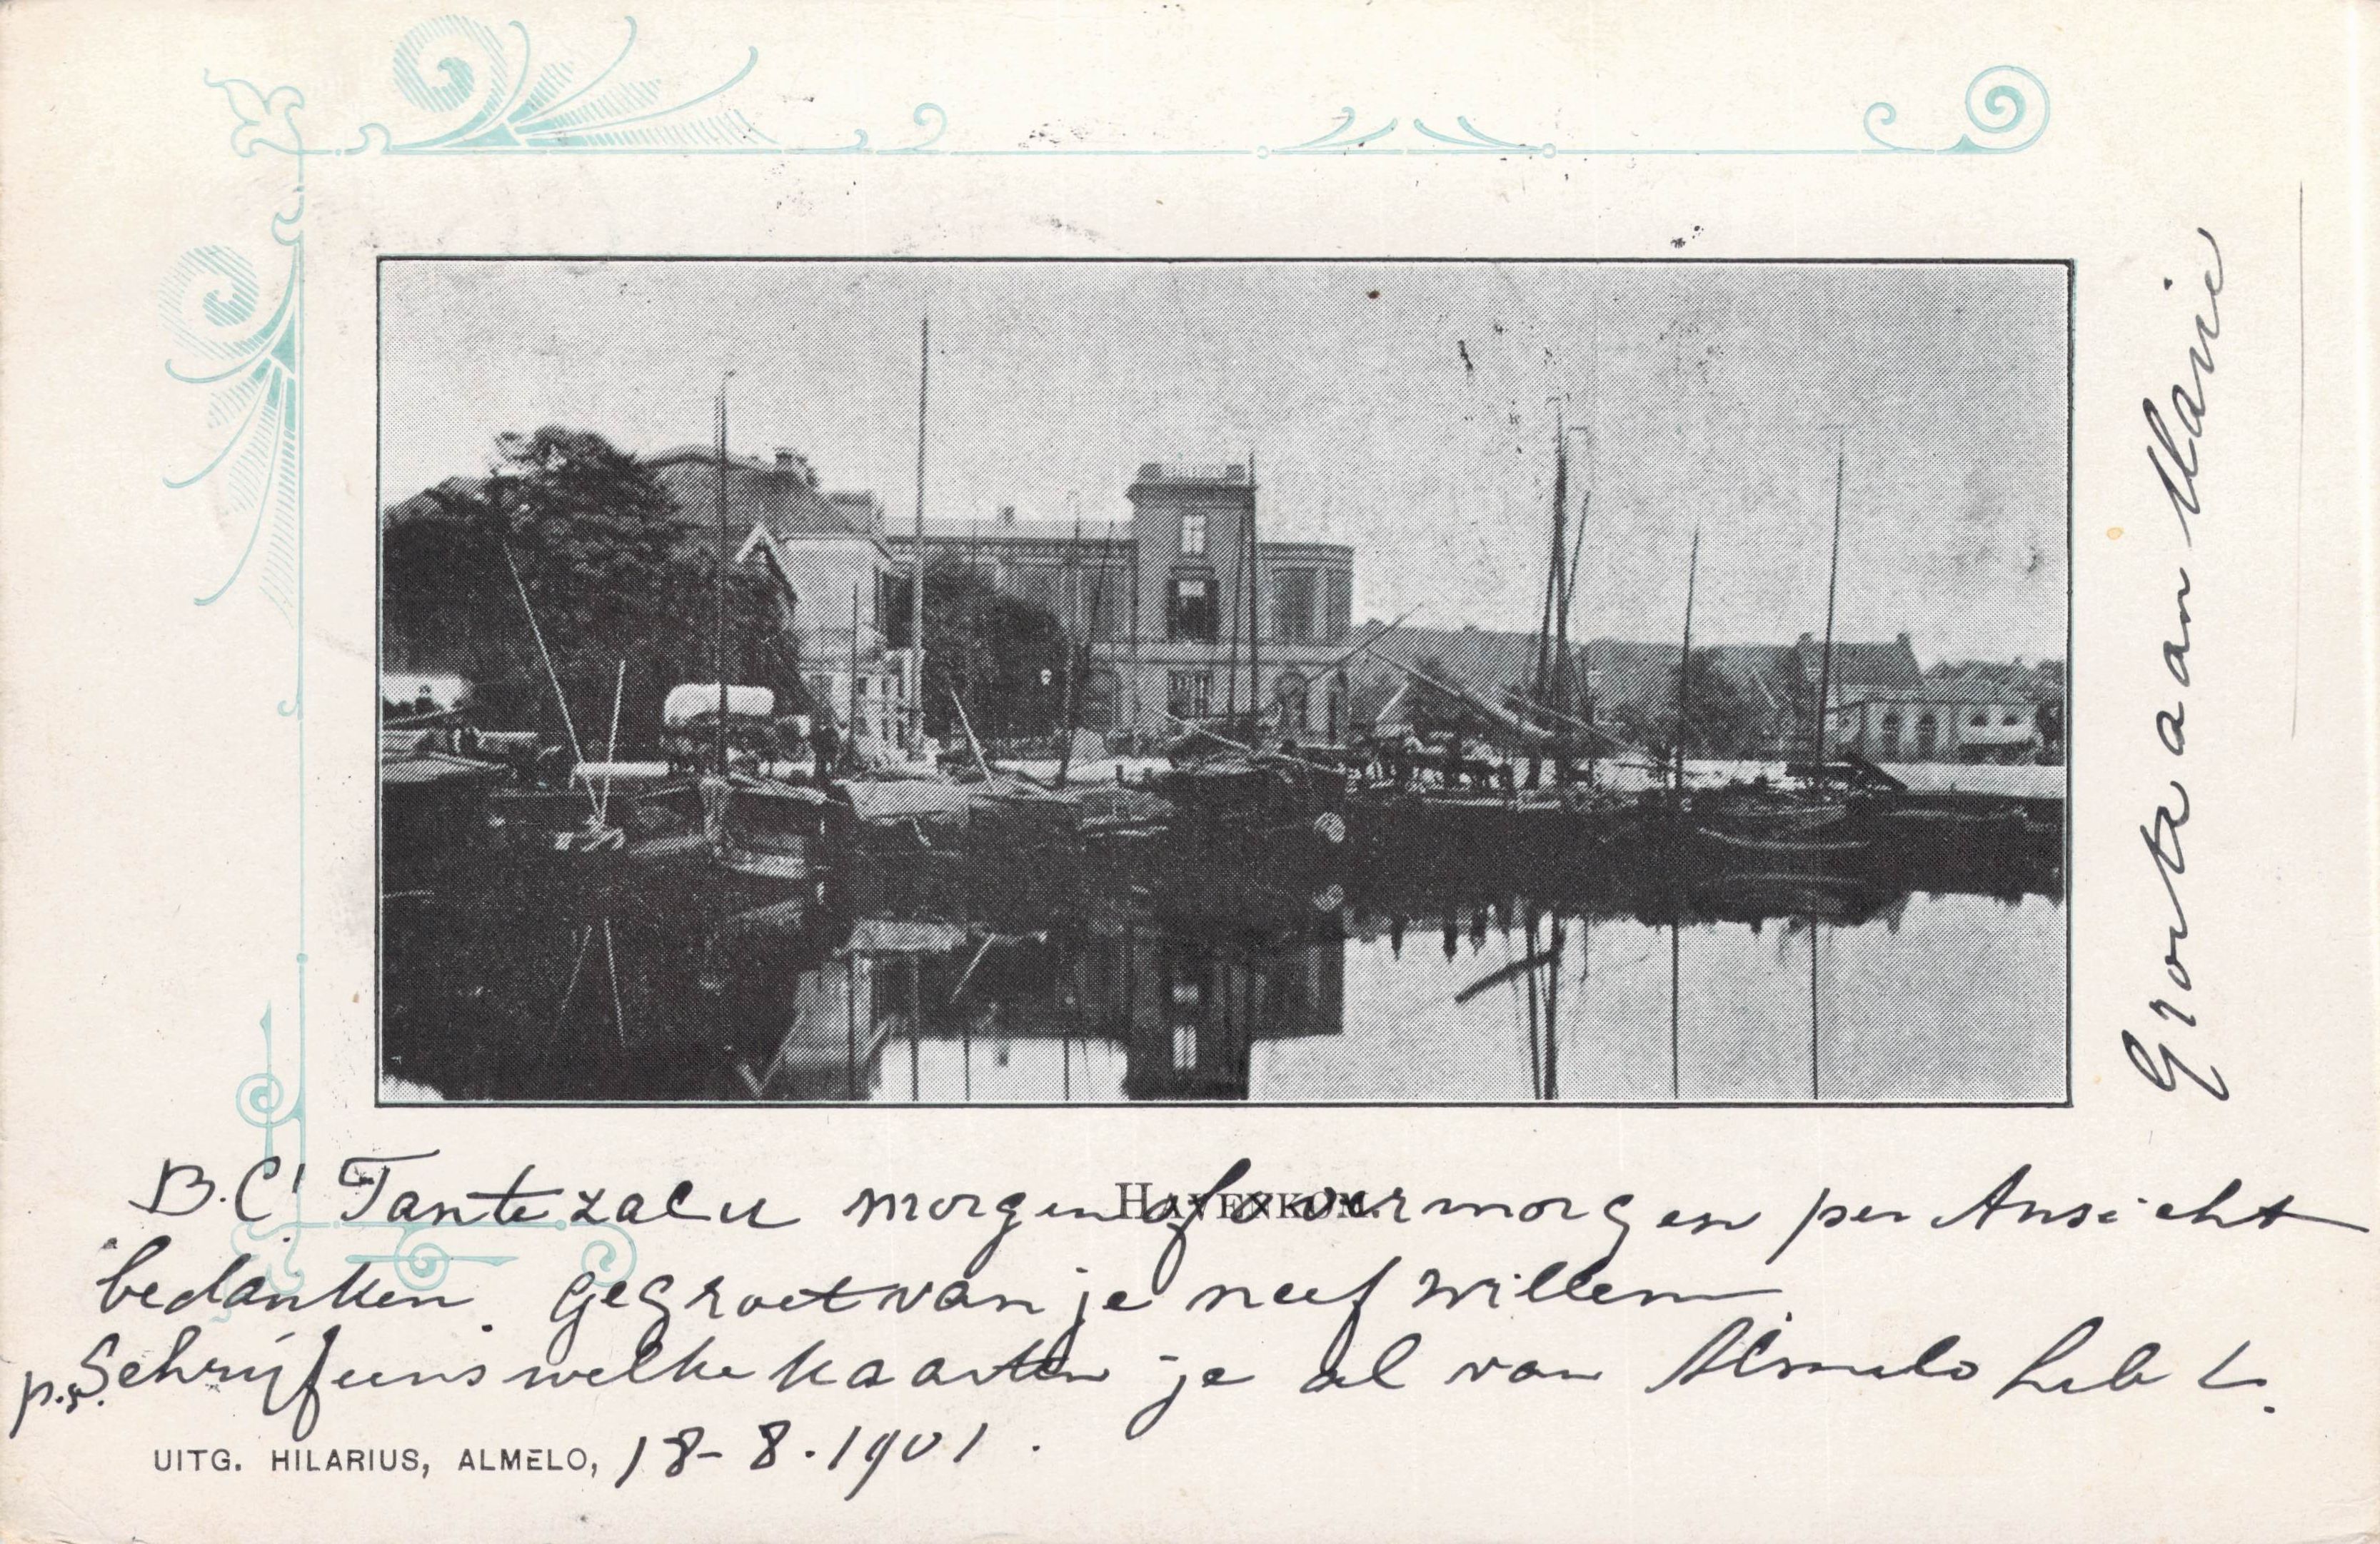 Groeten aan Marie
HAVENKOM.
B.C! Tante zal u morgen of overmorgen per Ansicht
bedanken. Gegroet van je neef Willem.
p.s. Schrijf eens welke kaarten je al van Almelo hebt.
UITG. HILARIUS, ALMELO, 18-8-1901.